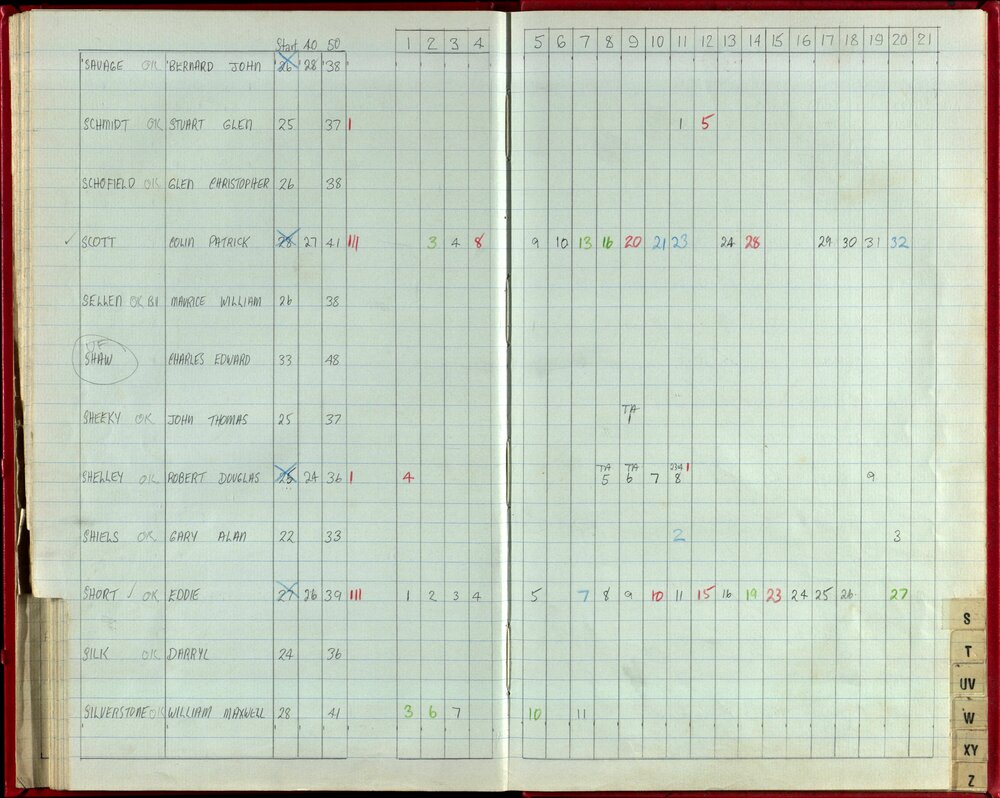 Start 40 50 1 2 3 4 5 6 7 8 9 10 11 12 13 14 15 16 17 18 19 20 21
SAVAGE OK BERNARD JOHN 26 28 38
SCHMIDT OK STUART GLEN 25 37 I 1 5
SCHOFIELD OK GLEN CHRISTOPHER 26 38
✓ SCOTT COLIN PATRICK 28 27 41 III 3 4 8 9 10 13 16 20 21 23 24 28 29 30 31 32
SELLEN OK MAURICE WILLIAM 26 38
SHAW CHARLES EDWARD 33 48
TA
SHEEKY OK JOHN THOMAS 25 37 1
TA TA 234 I
SHELLEY OK ROBERT DOUGLAS 25 24 36 I 4 5 6 7 8 9
SHIELS OK GARY ALAN 22 33 2 3
SHORT ✓ OK EDDIE 27 26 39 III 1 2 3 4 5 7 8 9 10 11 15 16 19 23 24 25 26 27
SILK OK DARRYL 24 36
SILVERSTONE OK WILLIAM MAXWELL 28 41 3 6 7 10 11
S
T
UV
W
XY
Z